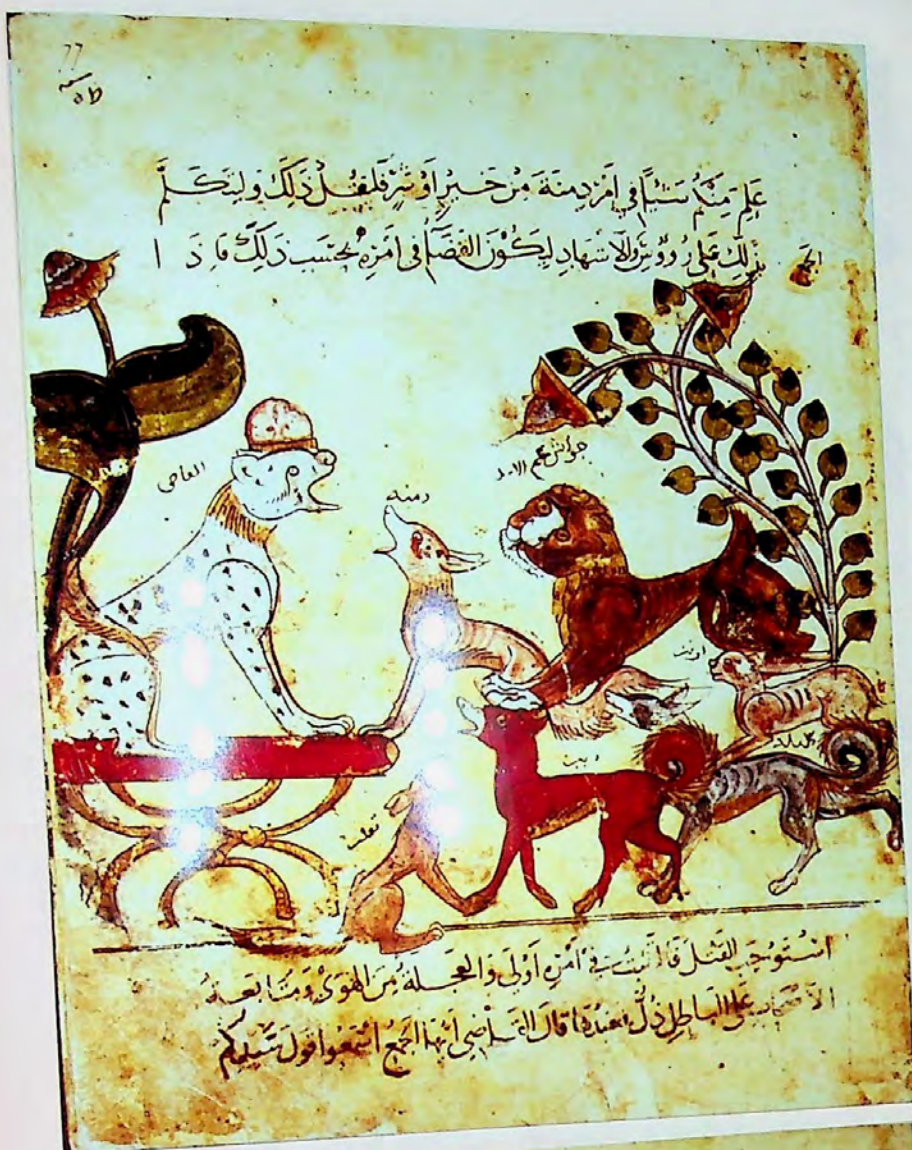 77
علم منكم شيئا في امر دمنة من خير او شر فليقل ذلك وليتكلم
بذلك على رووس الاشهاد ليكون القضا في امره بحسب ذلك فاذا
القاضي
دمنه
جواش عم الاسد
ارنب
ديب
ثعلب
استوجب القتل فالتثبت في امره اولى والعجلة من الهوى ومتابعة
الاصحاب على الباطل ذل قال القاضي ايها الجمع اسمعوا قول سيدكم